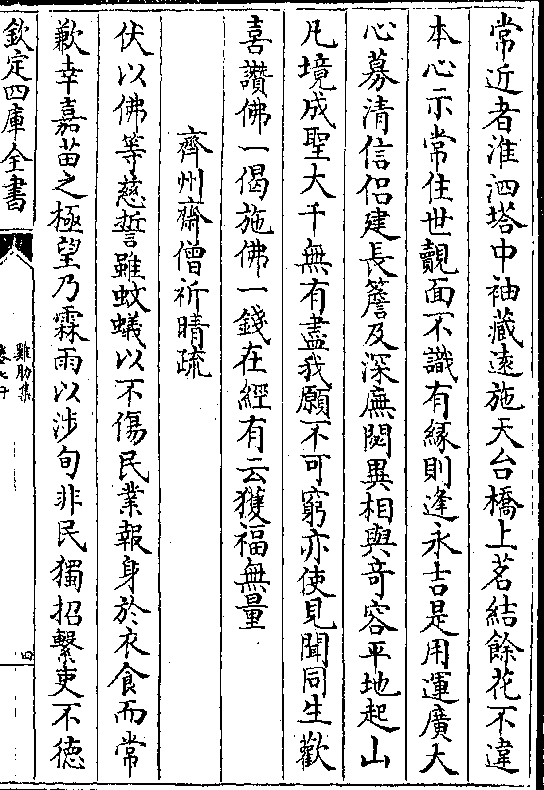 常近者淮泗塔中袖藏遠施天台橋上茗結餘花不違
本心示常住世覿面不識有緣則逢永吉是用運廣大
心募清信侣建長簷及深廡閟異相與奇容平地起山
凡境成聖大千無有盡我願不可窮亦使見聞同生歡
喜讚佛一偈施佛一錢在經有云獲福無量
齊州齋僧祈晴疏
伏以佛等慈誓雖蚊蟻以不傷民業報身於衣食而常
歉幸嘉苗之極望乃霖雨以涉旬非民獨招繫吏不德
欽定四庫全書
雞肋集
四